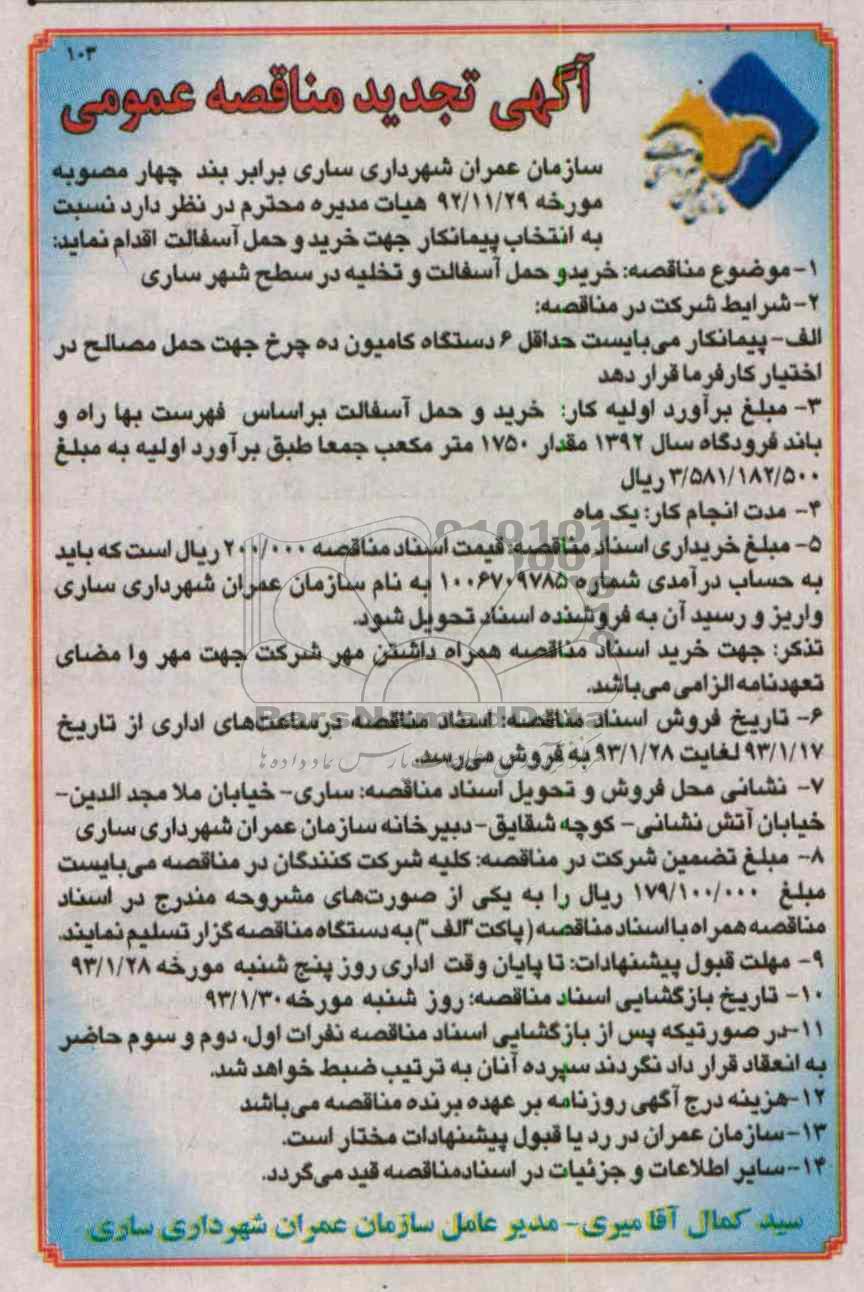 ۱۰۳
آگهی تجدید مناقصه عمومی
سازمان عمران شهرداری ساری برابر بند چهار مصوبه
مورخه ۹۲/۱۱/۲۹ هیات مدیره محترم در نظر دارد نسبت
به انتخاب پیمانکار جهت خرید و حمل آسفالت اقدام نماید:
۱- موضوع مناقصه: خریدو حمل آسفالت و تخلیه در سطح شهر ساری
۲- شرایط شرکت در مناقصه:
الف- پیمانکار می‌بایست حداقل ۶ دستگاه کامیون ده چرخ جهت حمل مصالح در
اختیار کارفرما قرار دهد
۳- مبلغ برآورد اولیه کار: خرید و حمل آسفالت براساس فهرست بها راه و
باند فرودگاه سال ۱۳۹۲ مقدار ۱۷۵۰ متر مکعب جمعا طبق برآورد اولیه به مبلغ
۳/۵۸۱/۱۸۲/۵۰۰ ریال
۴- مدت انجام کار: یک ماه
۵- مبلغ خریداری اسناد مناقصه: قیمت اسناد مناقصه ۲۰۰/۰۰۰ ریال است که باید
به حساب درآمدی شماره ۱۰۰۶۷۰۹۷۸۵ به نام سازمان عمران شهرداری ساری
واریز و رسید آن به فروشنده اسناد تحویل شود.
تذکر: جهت خرید اسناد مناقصه همراه داشتن مهر شرکت جهت مهر وا مضای
تعهدنامه الزامی می‌باشد.
ParsNamadData
۶- تاریخ فروش اسناد مناقصه: اسناد مناقصه درساعت‌های اداری از تاریخ
۹۳/۱/۱۷ لغایت ۹۳/۱/۲۸ به فروش می‌رسد.
۷- نشانی محل فروش و تحویل اسناد مناقصه: ساری- خیابان ملا مجد الدین-
خیابان آتش نشانی- کوچه شقایق- دبیرخانه سازمان عمران شهرداری ساری
۸- مبلغ تضمین شرکت در مناقصه: کلیه شرکت کنندگان در مناقصه می‌بایست
مبلغ ۱۷۹/۱۰۰/۰۰۰ ریال را به یکی از صورت‌های مشروحه مندرج در اسناد
مناقصه همراه با اسناد مناقصه (پاکت "الف") به دستگاه مناقصه گزار تسلیم نمایند.
۹- مهلت قبول پیشنهادات: تا پایان وقت اداری روز پنج شنبه مورخه ۹۳/۱/۲۸
۱۰- تاریخ بازگشایی اسناد مناقصه: روز شنبه مورخه ۹۳/۱/۳۰
۱۱-در صورتیکه پس از بازگشایی اسناد مناقصه نفرات اول، دوم و سوم حاضر
به انعقاد قرار داد نگردند سپرده آنان به ترتیب ضبط خواهد شد.
۱۲-هزینه درج آگهی روزنامه بر عهده برنده مناقصه می‌باشد
۱۳-سازمان عمران در رد یا قبول پیشنهادات مختار است.
۱۴-سایر اطلاعات و جزئیات در اسنادمناقصه قید می‌گردد.
سید کمال آقا میری- مدیر عامل سازمان عمران شهرداری ساری